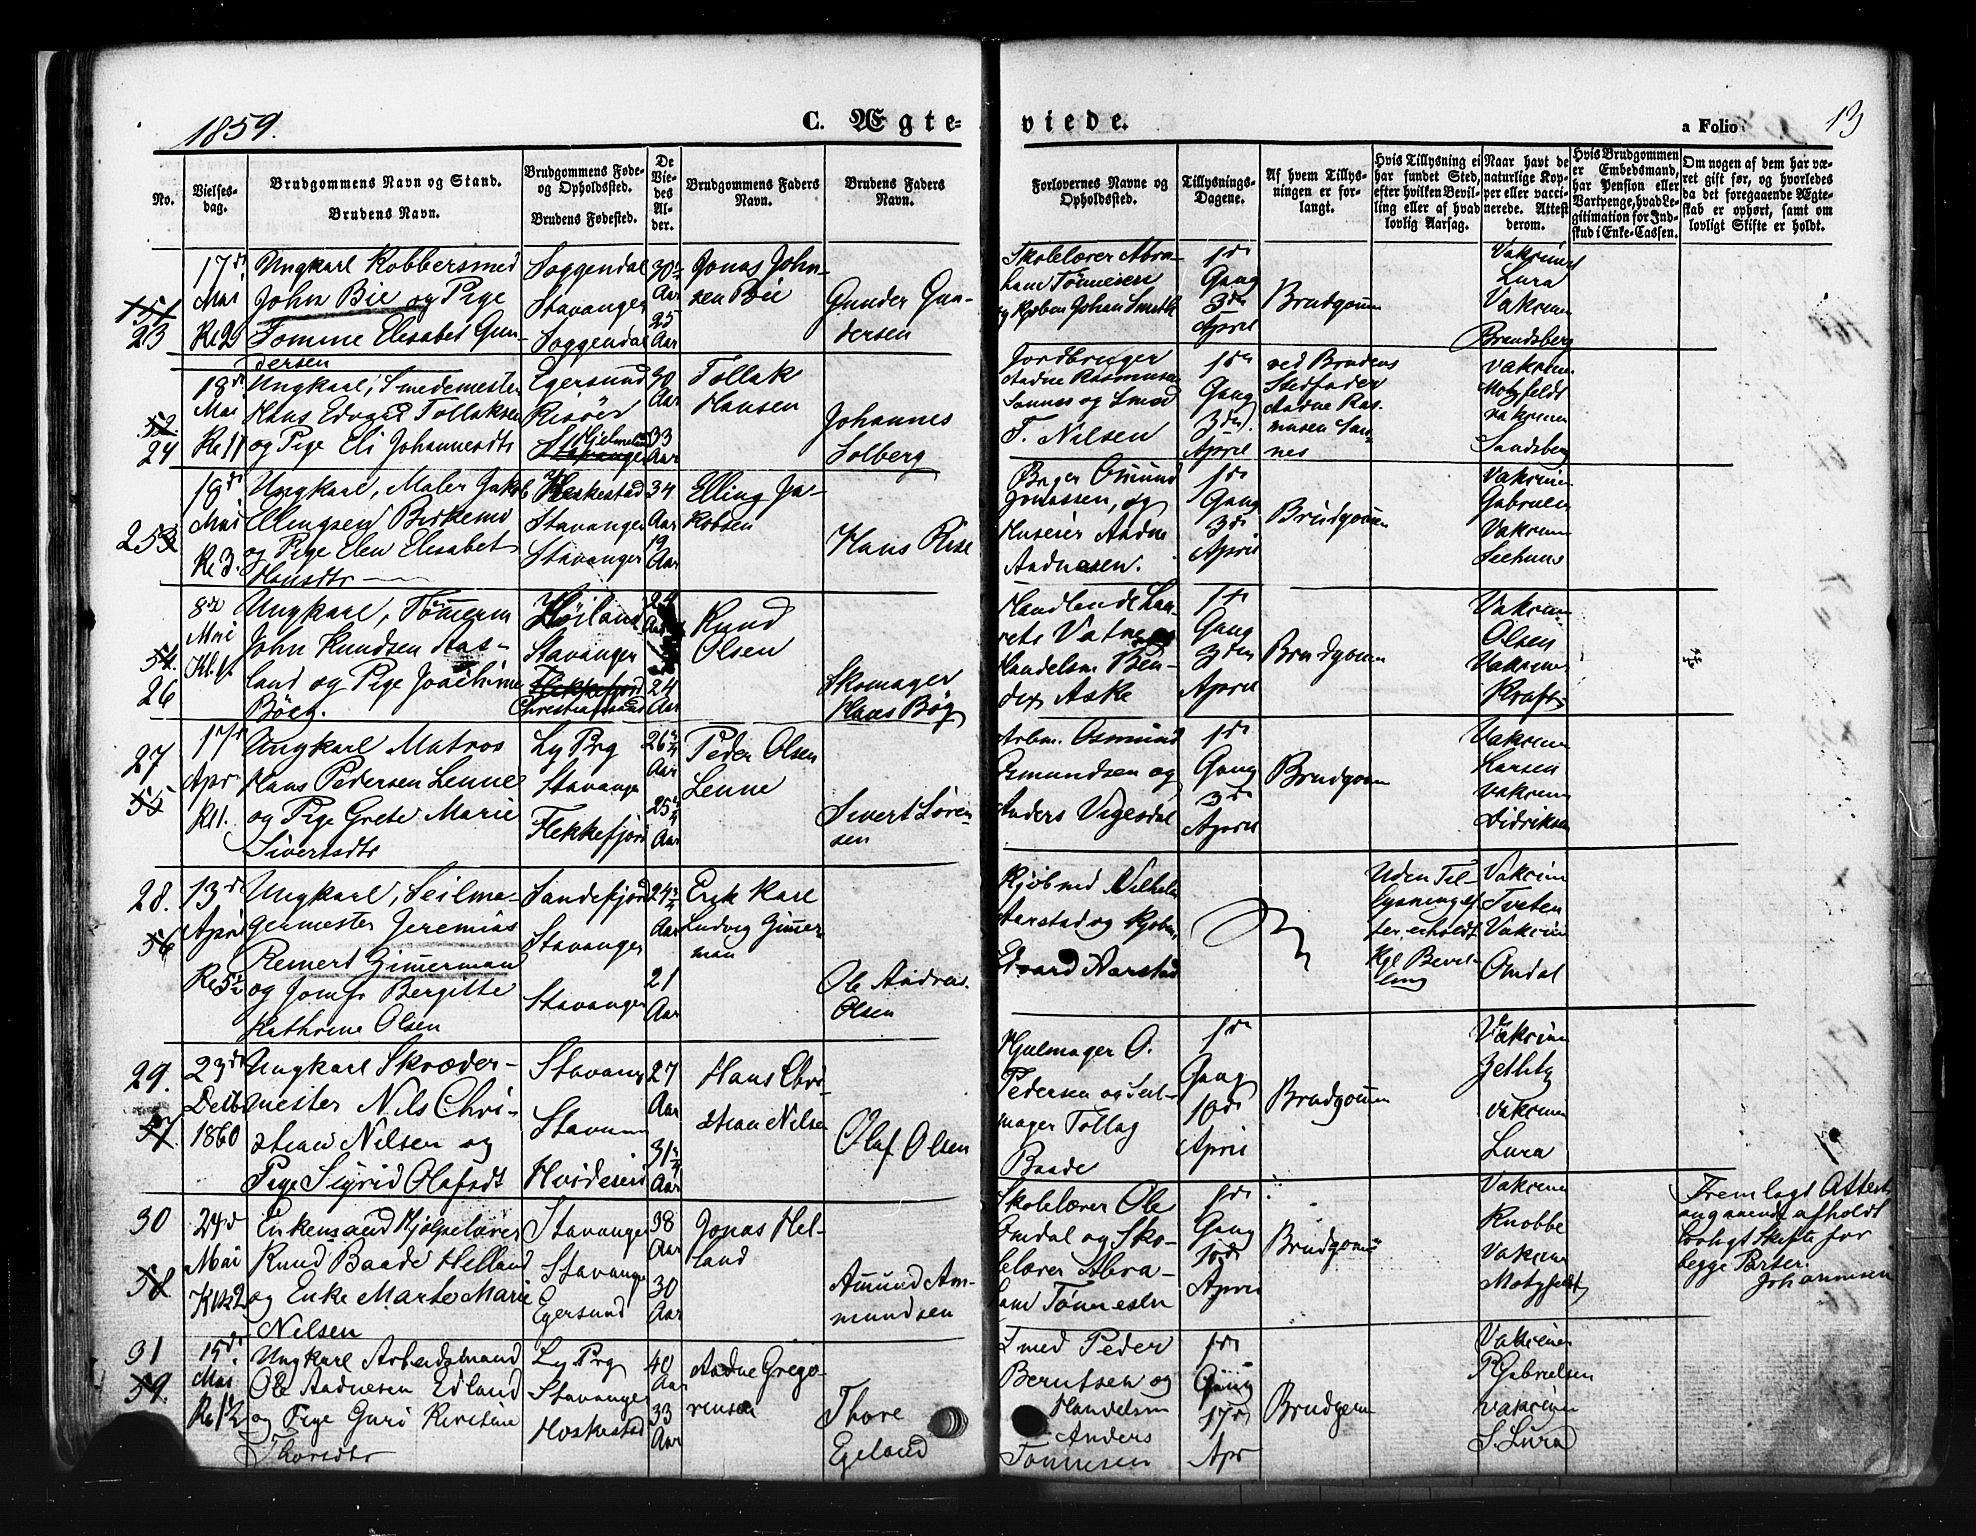 1859.
C. Ægte-
viede.
a Folio
13
No.
Vielses-
dag.
Brudgommens Navn og Stand.
Brudens Navn.
Brudgommens Føde-
og Opholdssted.
Brudens Fødested.
De
Vie-
des
Al-
der.
Brudgommens Faders
Navn.
Brudens Faders
Navn.
Forlovernes Navne og
Opholdssted.
Tillysnings-
Dagene.
Af hvem Tillys-
ningen er for-
langt.
Hvis Tillysning ei
har fundet Sted,
efter hvilken Bevil-
ling eller af hvad
lovlig Aarsag.
Naar havt de
naturlige Kop-
per eller vacci-
nerede. Attest
derom.
Hvis Brudgommen
er Embedsmand,
har Pension eller
Vartpenge, hvad Le-
gitimation for Ind-
skud i Enke-Cassen.
Om nogen af dem har væ-
ret gift før, og hvorledes
da det foregaaende Ægte-
skab er ophørt, samt om
lovligt Skifte er holdt.
23
17d
Mai
Kl 2
Ungkarl Kobbersmed
John Bie og Pige
Tomine Elisabet Gun-
dersen
Soggendal
Stavanger
Soggendal
30½
Aar
25
Aar
Jonas John-
sen Bie
Gunder Gun-
dersen
Skolelærer Abra-
ham Tønnesen
og Kjøbm Johan Smith
1ste
Gang
3die
April
Brudgom
Vakcine
Lura
Vakcine
Brandsberg
52
24
18d
Mai
Kl 11
Ungkarl, Smedemester
Hans Edvard Tollaksen
og Pige Eli Johannesdtr
Egersund
Risöer
Hjelmeland
Stavanger
30
Aar
33
Aar
Tollak
Hansen
Johannes
Solberg
Jordbruger
Aadne Rasmusen
Sannes og Smed
T. Nilsen
1ste
Gang
3die
April
ved Brudens
Stedfader
Aadne Ras-
musen San-
nes
Vakcine
Motzfeldt
vakcine
Sandsberg
25
53
18d
Mai
Kl 3.
Ungkarl, Maler Jakob
Ellingsen Birkemo
og Pige Elen Elisabet
Hansdtr
Heskestad
Stavanger
Stavanger
34
Aar
19
Aar
Elling Ja-
kobsen
Hans Rise
Bager Osmund
Jonassen, og
Huseier Aadne
Aadnesen.
1ste
Gang
3die
April
Brudgom
Vakcine
Gabrielsen
Vakcine
54.
26
8de
Mai
Ungkarl, Tømmerm
John Knudsen Aas-
land og Pige Joachime
Böeg.
Høiland
Stavanger
Flekkefjord
Christianssand
24
Aar
Knud
Olsen
Skomager
Hans Bög
Handlende Lau-
rets Vatne og
Handelsm Ben-
der Aske
1ste
Gang
3die
April
Brudgom
Vakcine
Olsen
Vakcine
Kraft
27
55
17d
Apr
Kl 1.
Ungkarl Matros
Hans Pedersen Lenne
og Pige Grete Marie
Sivertsdtr
Ly Prg
Stavanger
Flekkefjord
26¼
Aar
25¼
Aar
Peder Olsen
Lenne
Sivert Søren-
sen
Arbm. Osmund
Osmundsen og
Anders Vigesdal
1ste
Gang
3d
April
Brudgom
Vakcine
Hansen
Vakcine
Didriksen
28.
56
13d
April
Kl 5½
Ungkarl, Seilma-
germester Jeremias
Reinert Zimmerman
og Jomfr Bergitte
Kathrine Olsen
Sandefjord
Stavanger
Stavanger
24¼
Aar
21
Aar
Erik Karl
Ludvig Zimmer-
man
Ole Andreas
Olsen
Kjøbmd Vilhelm
Aarstad og Kjøbm.
Edvard Aarstad
Uden Til-
lysning ef-
ter erholdt
Kgl Bevil-
ling
Vakcine
Tveten
Vakcine
Omdal
29.
57
23d
Decbr
1860
Ungkarl Skræder-
mester Nils Chri-
stian Nilsen og
Pige Sigrid Olafsdt
Stavanger
Stavanger
Hvideseid
27
Aar
31¼
Aar
Hans Chri-
stian Nilsen
Olaf Olsen
Hjulmager O.
Pedersen og Seil-
mager Tollag
Baade
1ste
Gang
10de
April
Brudgom
Vakcine
Zetlitz
Vakcine
Lura
30
58
24d
Mai
Enkemand Hjelpelærer
Knud Baade Helland
og Enke Marte Marie
Nilsen
Stavanger
Stavanger
Egersund
38
Aar
30
Aar
Jonas Hel-
land
Amund Am-
mundsen
Skolelærer Ole
Omdal og Sko-
lelærer Abra-
ham Tønnesen
1ste
Gang
10de
April
Brudgom
Vakcine
Knobbe
Vakcine
Motzfeldt
Fremlagt Attest
angaaende afholdt
lovligt Skifte for
begge Parter.
Johannesen
31
59.
15d
Mai
Kl 1½
Ungkarl Arbeidsmand
Ole Aadnesen Edland
og Pige Guri Kirstine
Thoredtr
Ly Prg
Stavanger
Heskestad
40
Aar
33
Aar
Aadne Grego-
riusen
Thore
Egeland
Smed Peder
Berntsen og
Handelsm
Anders
Tønnesen
1ste
Gang
17de
Apr
Brudgom
Vakcine
P. Gabrielsen
Vakcine
S. Lura